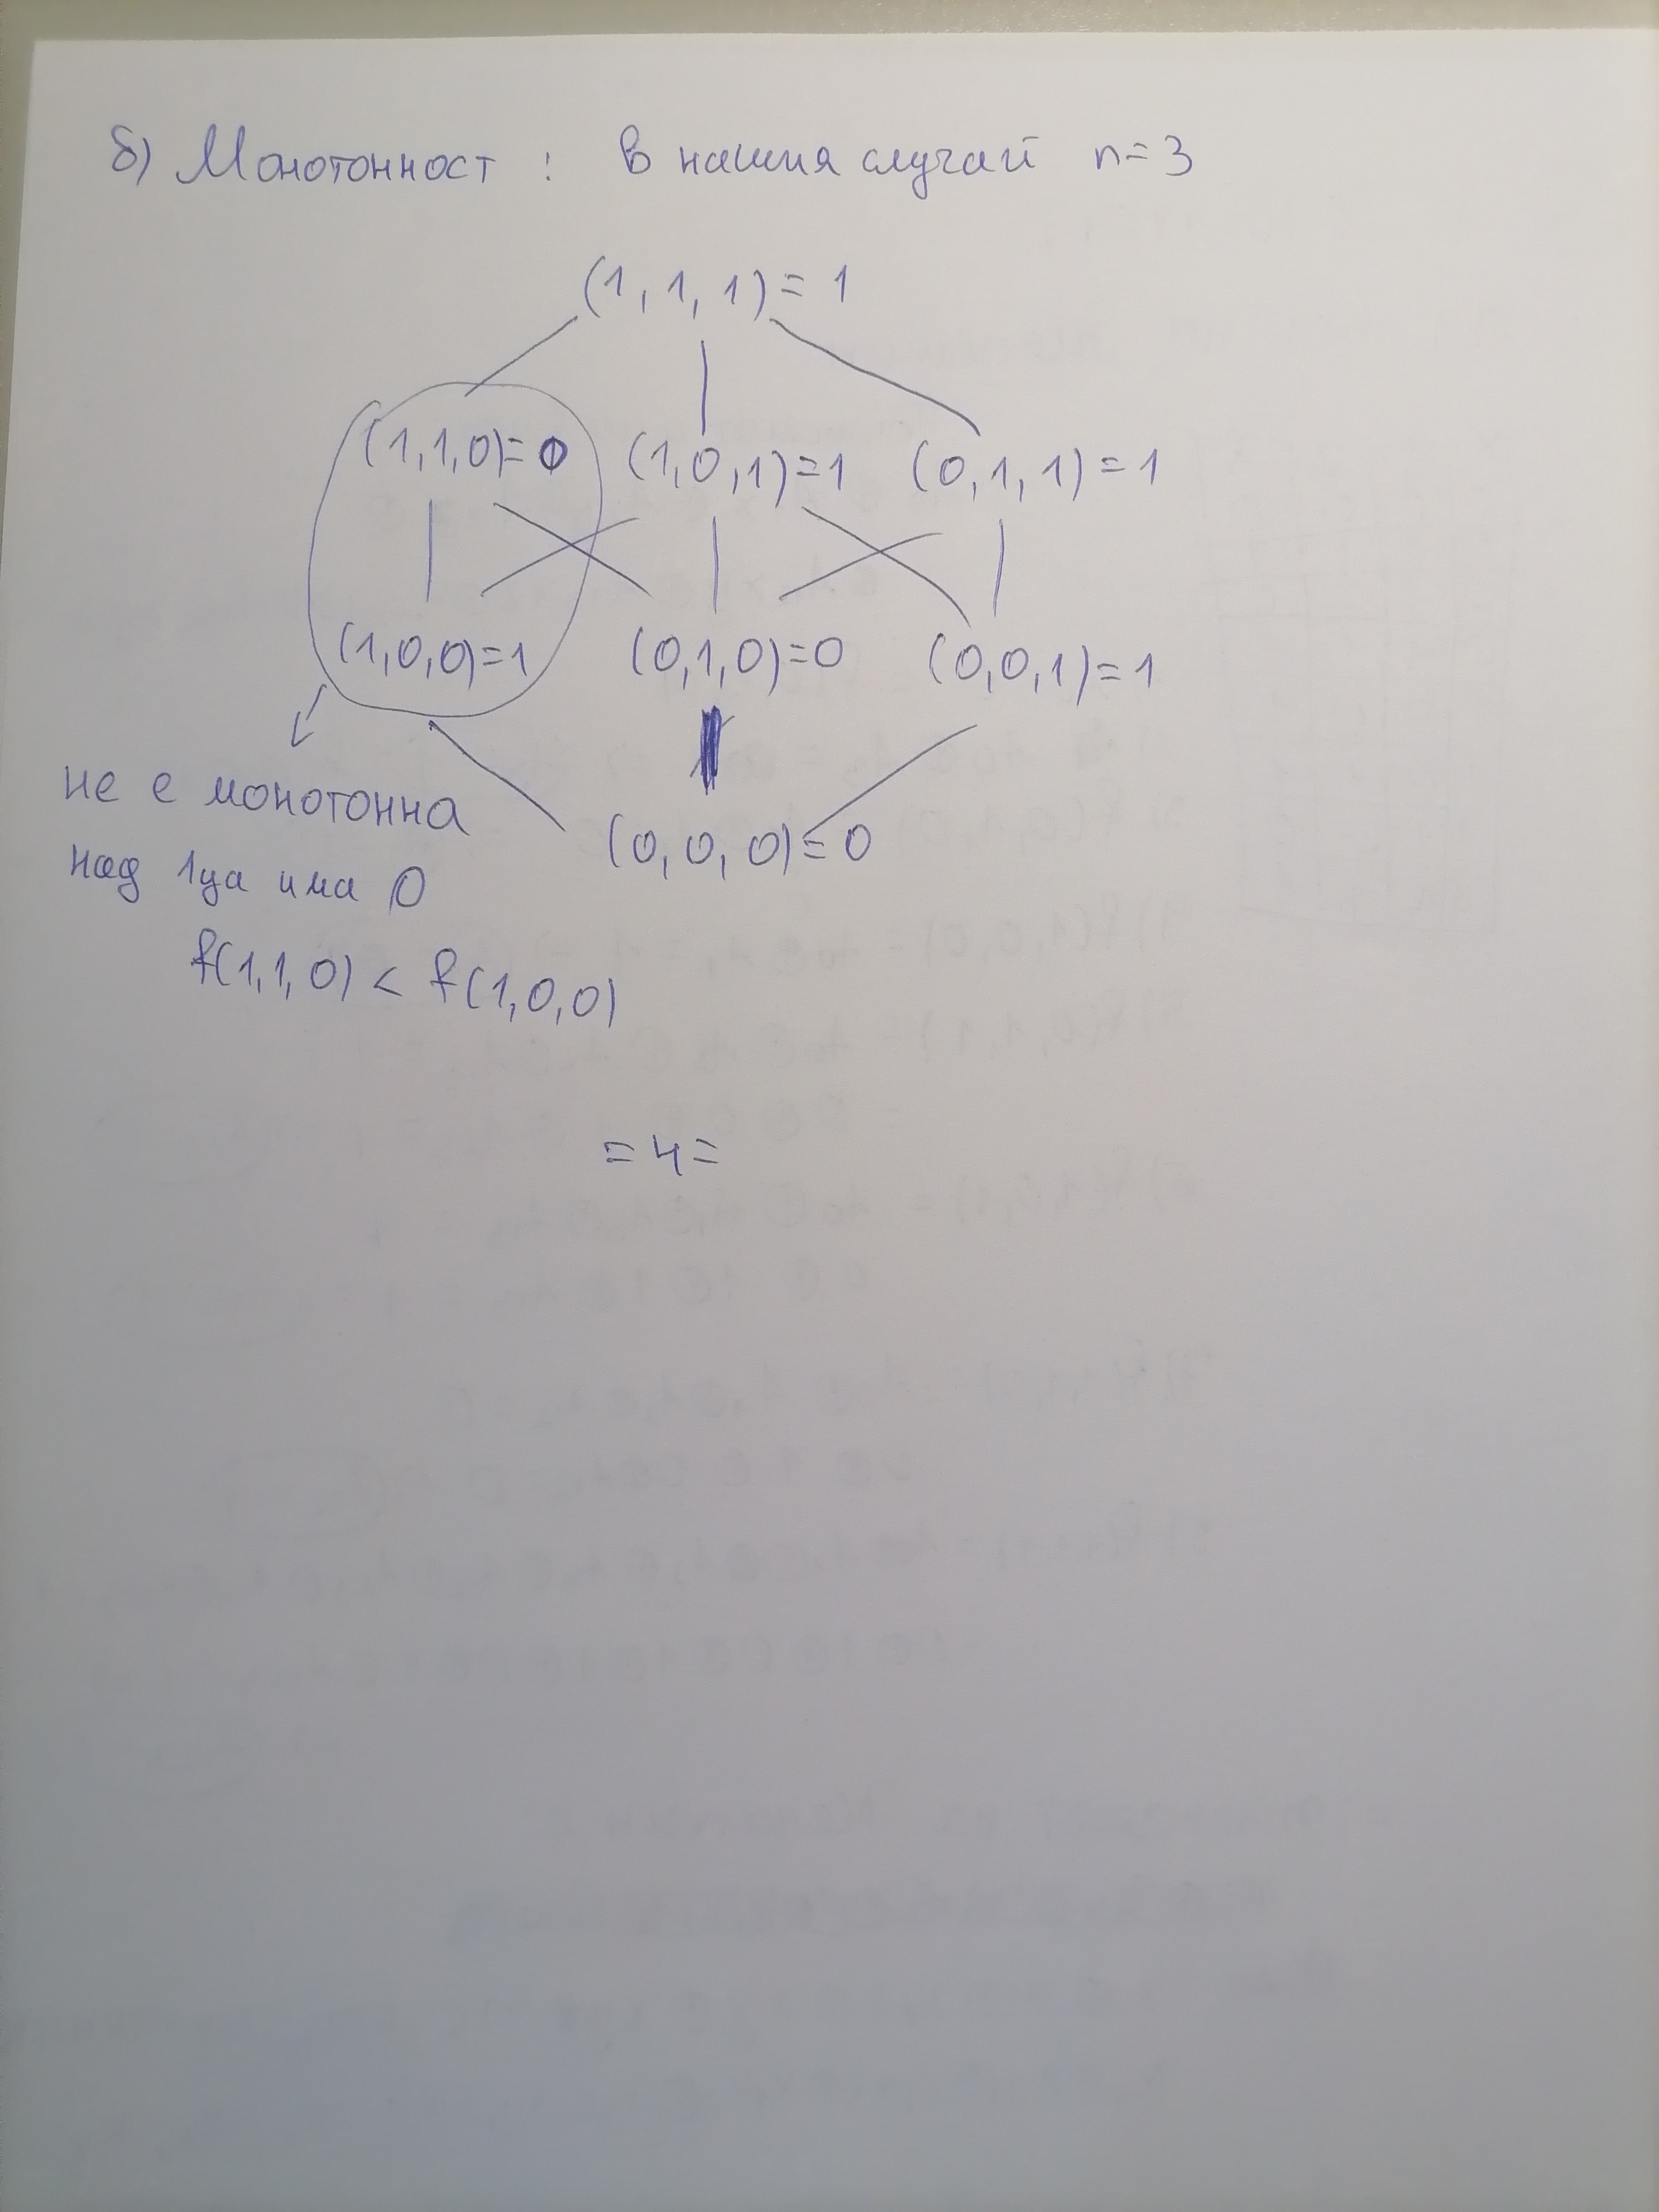 б) Монотонност : В нашия случай n=3
(1, 1, 1) = 1
(1,1,0)=0 (1,0,1)=1 (0,1,1)=1
(1,0,0)=1 (0,1,0)=0 (0,0,1)=1
(0,0,0)=0
не е монотонна
над 1ца има 0
f(1,1,0) < f(1,0,0)
=4=